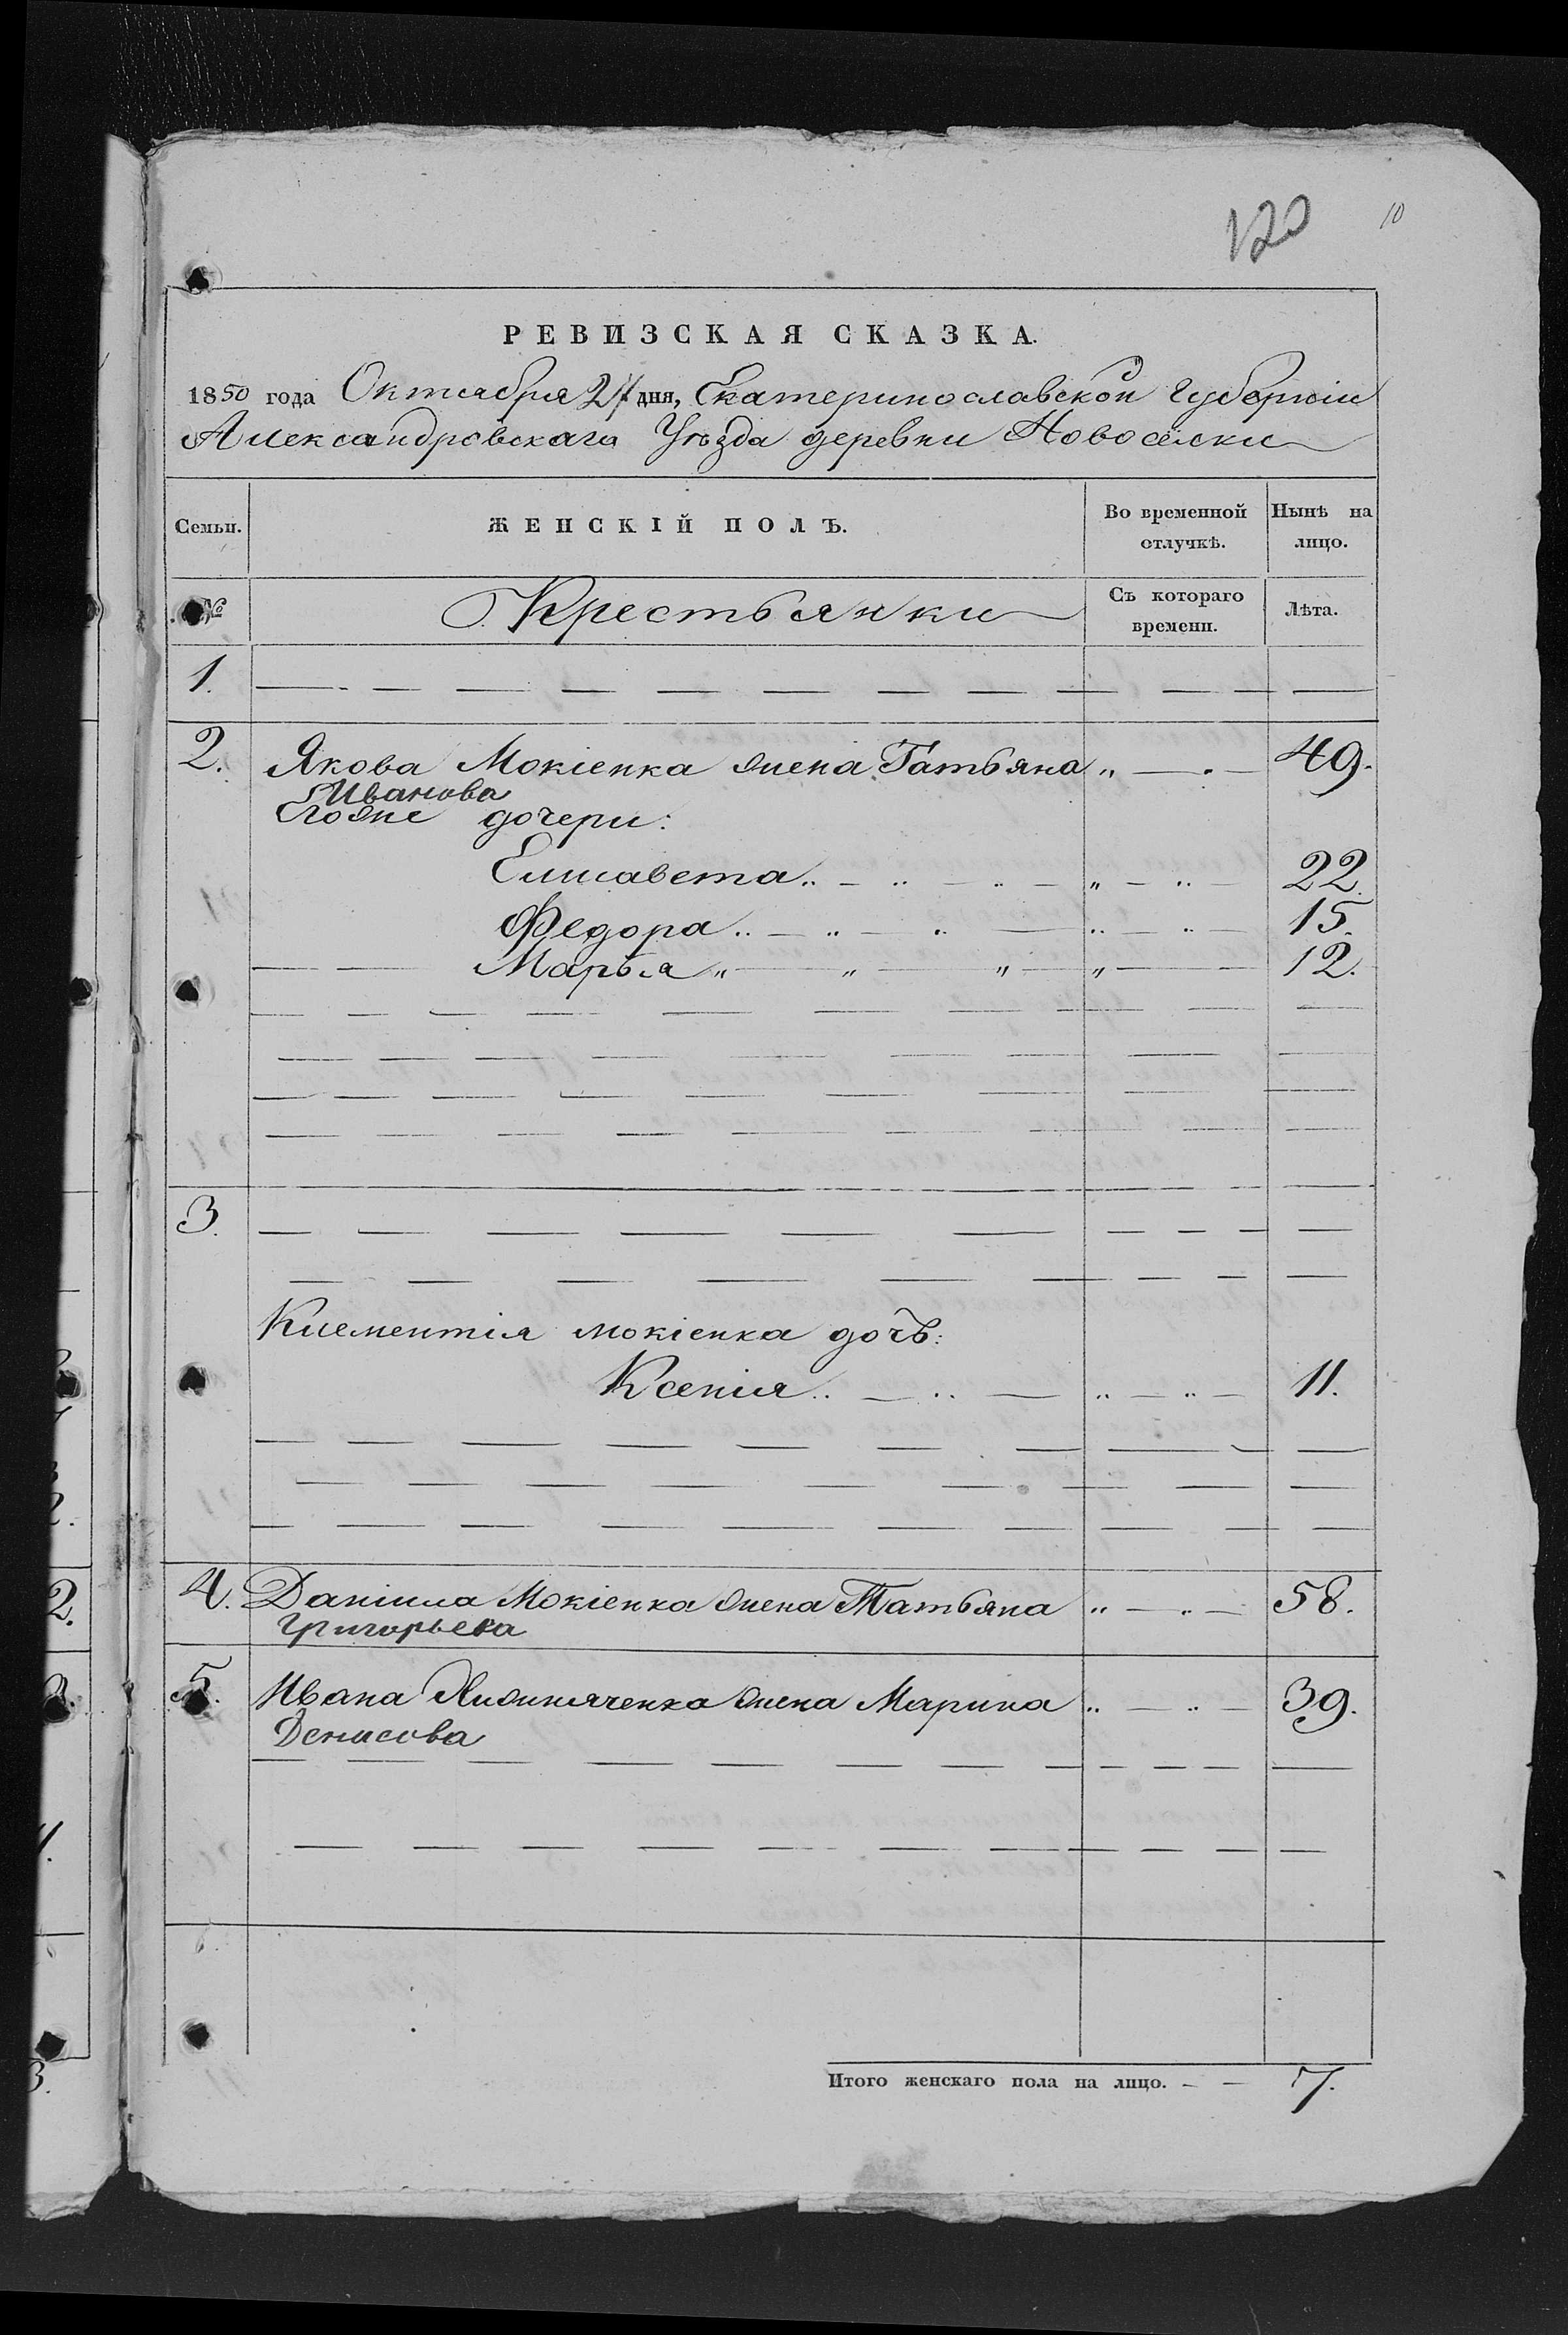 120 10
РЕВИЗСКАЯ СКАЗКА.
1850 года Октября 24 дня, Екатеринославской Губерніи
Александровскаго Уѣзда деревни Новосёлки
Семьи. ЖЕНСКІЙ ПОЛЪ. Во временной отлучкѣ. Нынѣ на лицо.
№ Крестьянки Съ котораго времени. Лѣта.
1.
2. Якова Мокіенка жена Татьяна 49.
Иванова
Егоже дочери:
Елисавета 22.
Федора 15.
Марья 12.
3.
Климентія мокіенка дочь:
Ксенія 11.
4. Даніила Мокіенка жена Татьяна 58.
Григорьева
5. Ивана жена Марина 39.
Денисова
Итого женскаго пола на лицо. 7.